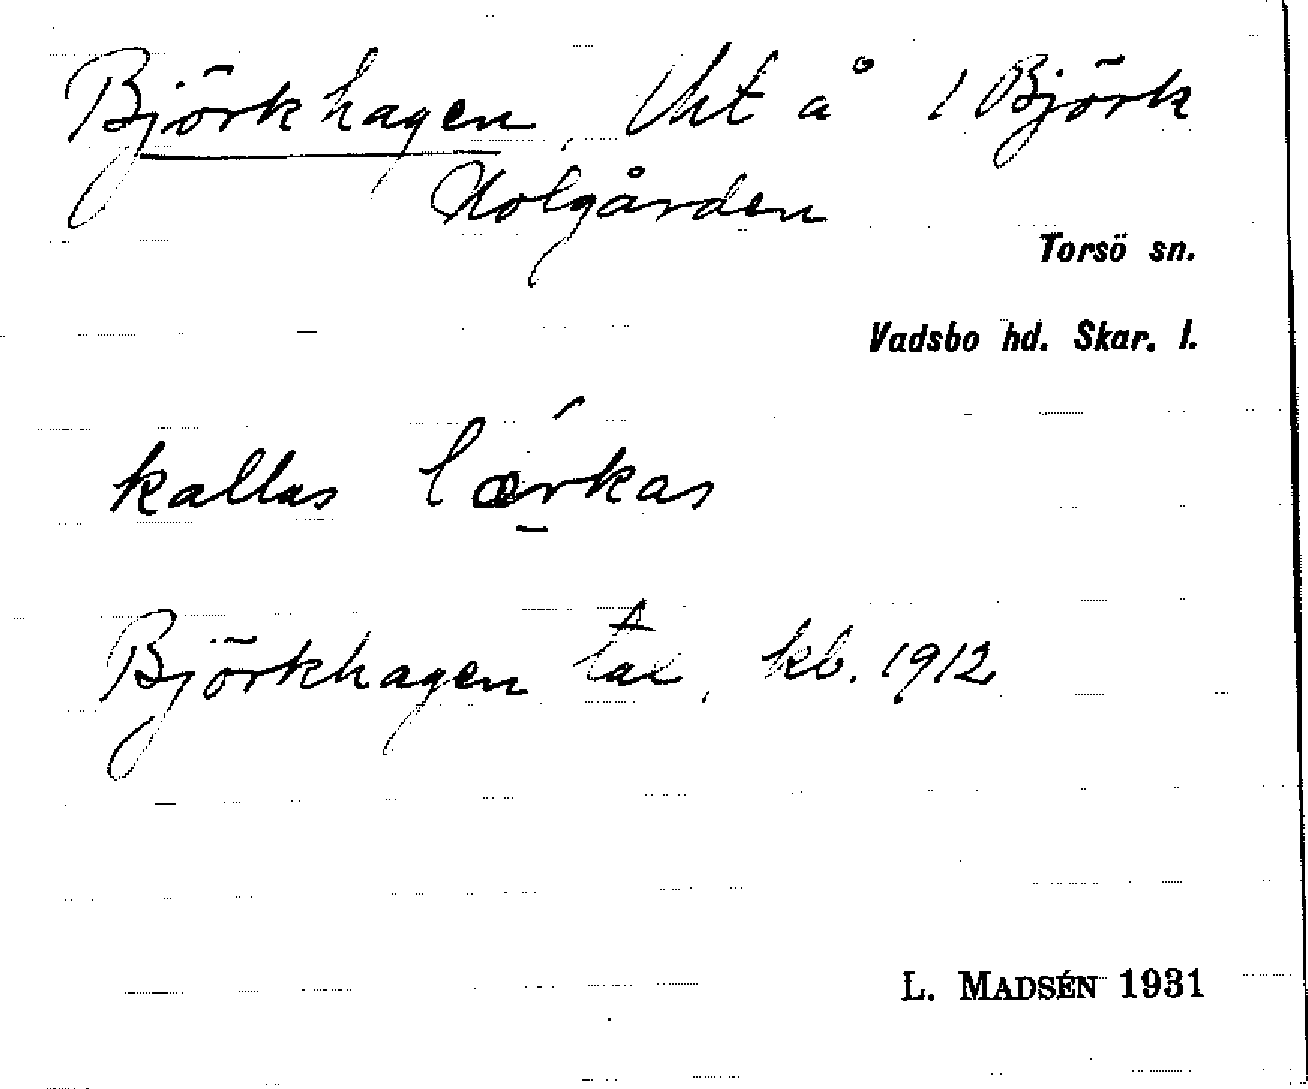 Björkhagen, lht å 1 Björk
Holgården
Torsö sn.
Vadsbo hd. Skar. l.
kallas lærkas
Björkhagen kb. 1912
L. MADSÉN 1931